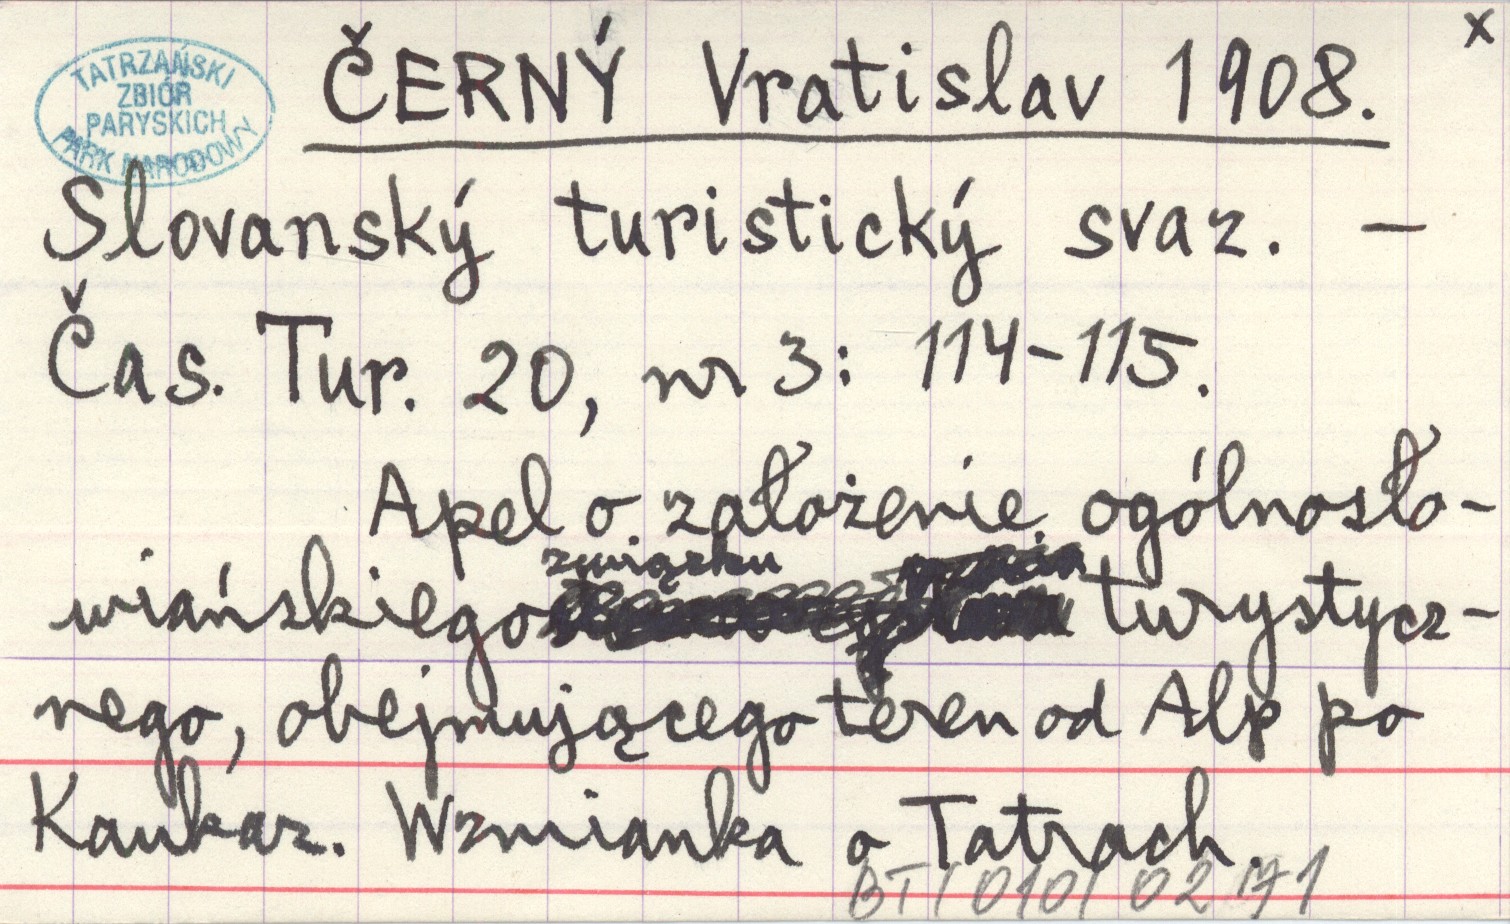 x
TATRZAŃSKI
ZBIÓR
PARYSKICH
PARK NARODOWY
ČERNÝ Vratislav 1908.
Slovanský turistický svaz. —
Čas. Tur. 20, nr 3: 114-115.
Apel o założenie ogólnosło-
związku
wiańskiego turystycz-
nego, obejmującego teren od Alp po
Kaukaz. Wzmianka o Tatrach.